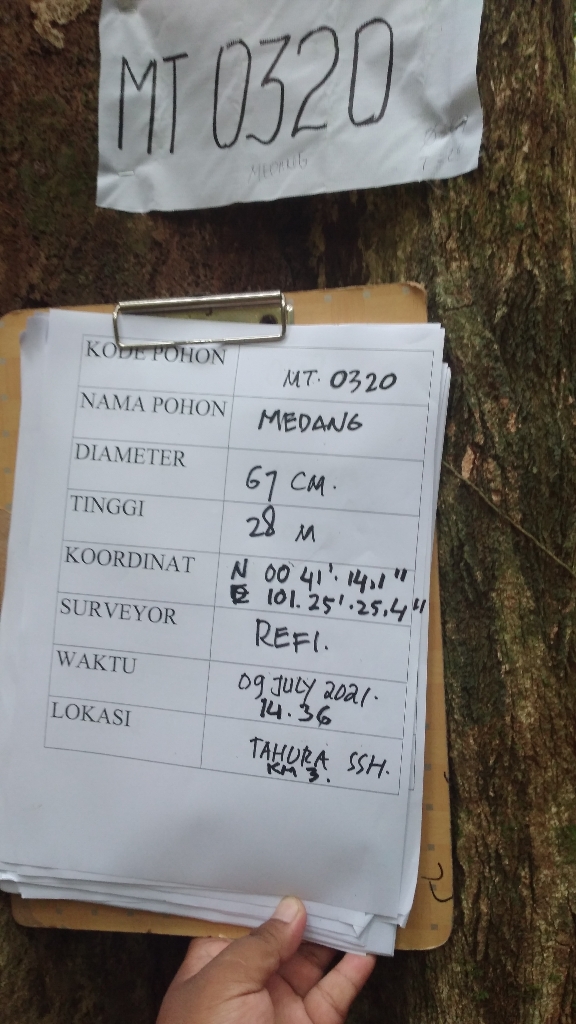 MT 0320
MEDANG
KODE POHON MT. 0320
NAMA POHON MEDANG
DIAMETER 67 CM.
TINGGI 28 M
KOORDINAT N 00 41'. 14,1"
E 101. 25'. 25,4"
SURVEYOR REFI.
WAKTU 09 JULY 2021.
14.36
LOKASI TAHURA SSH.
KM 3.